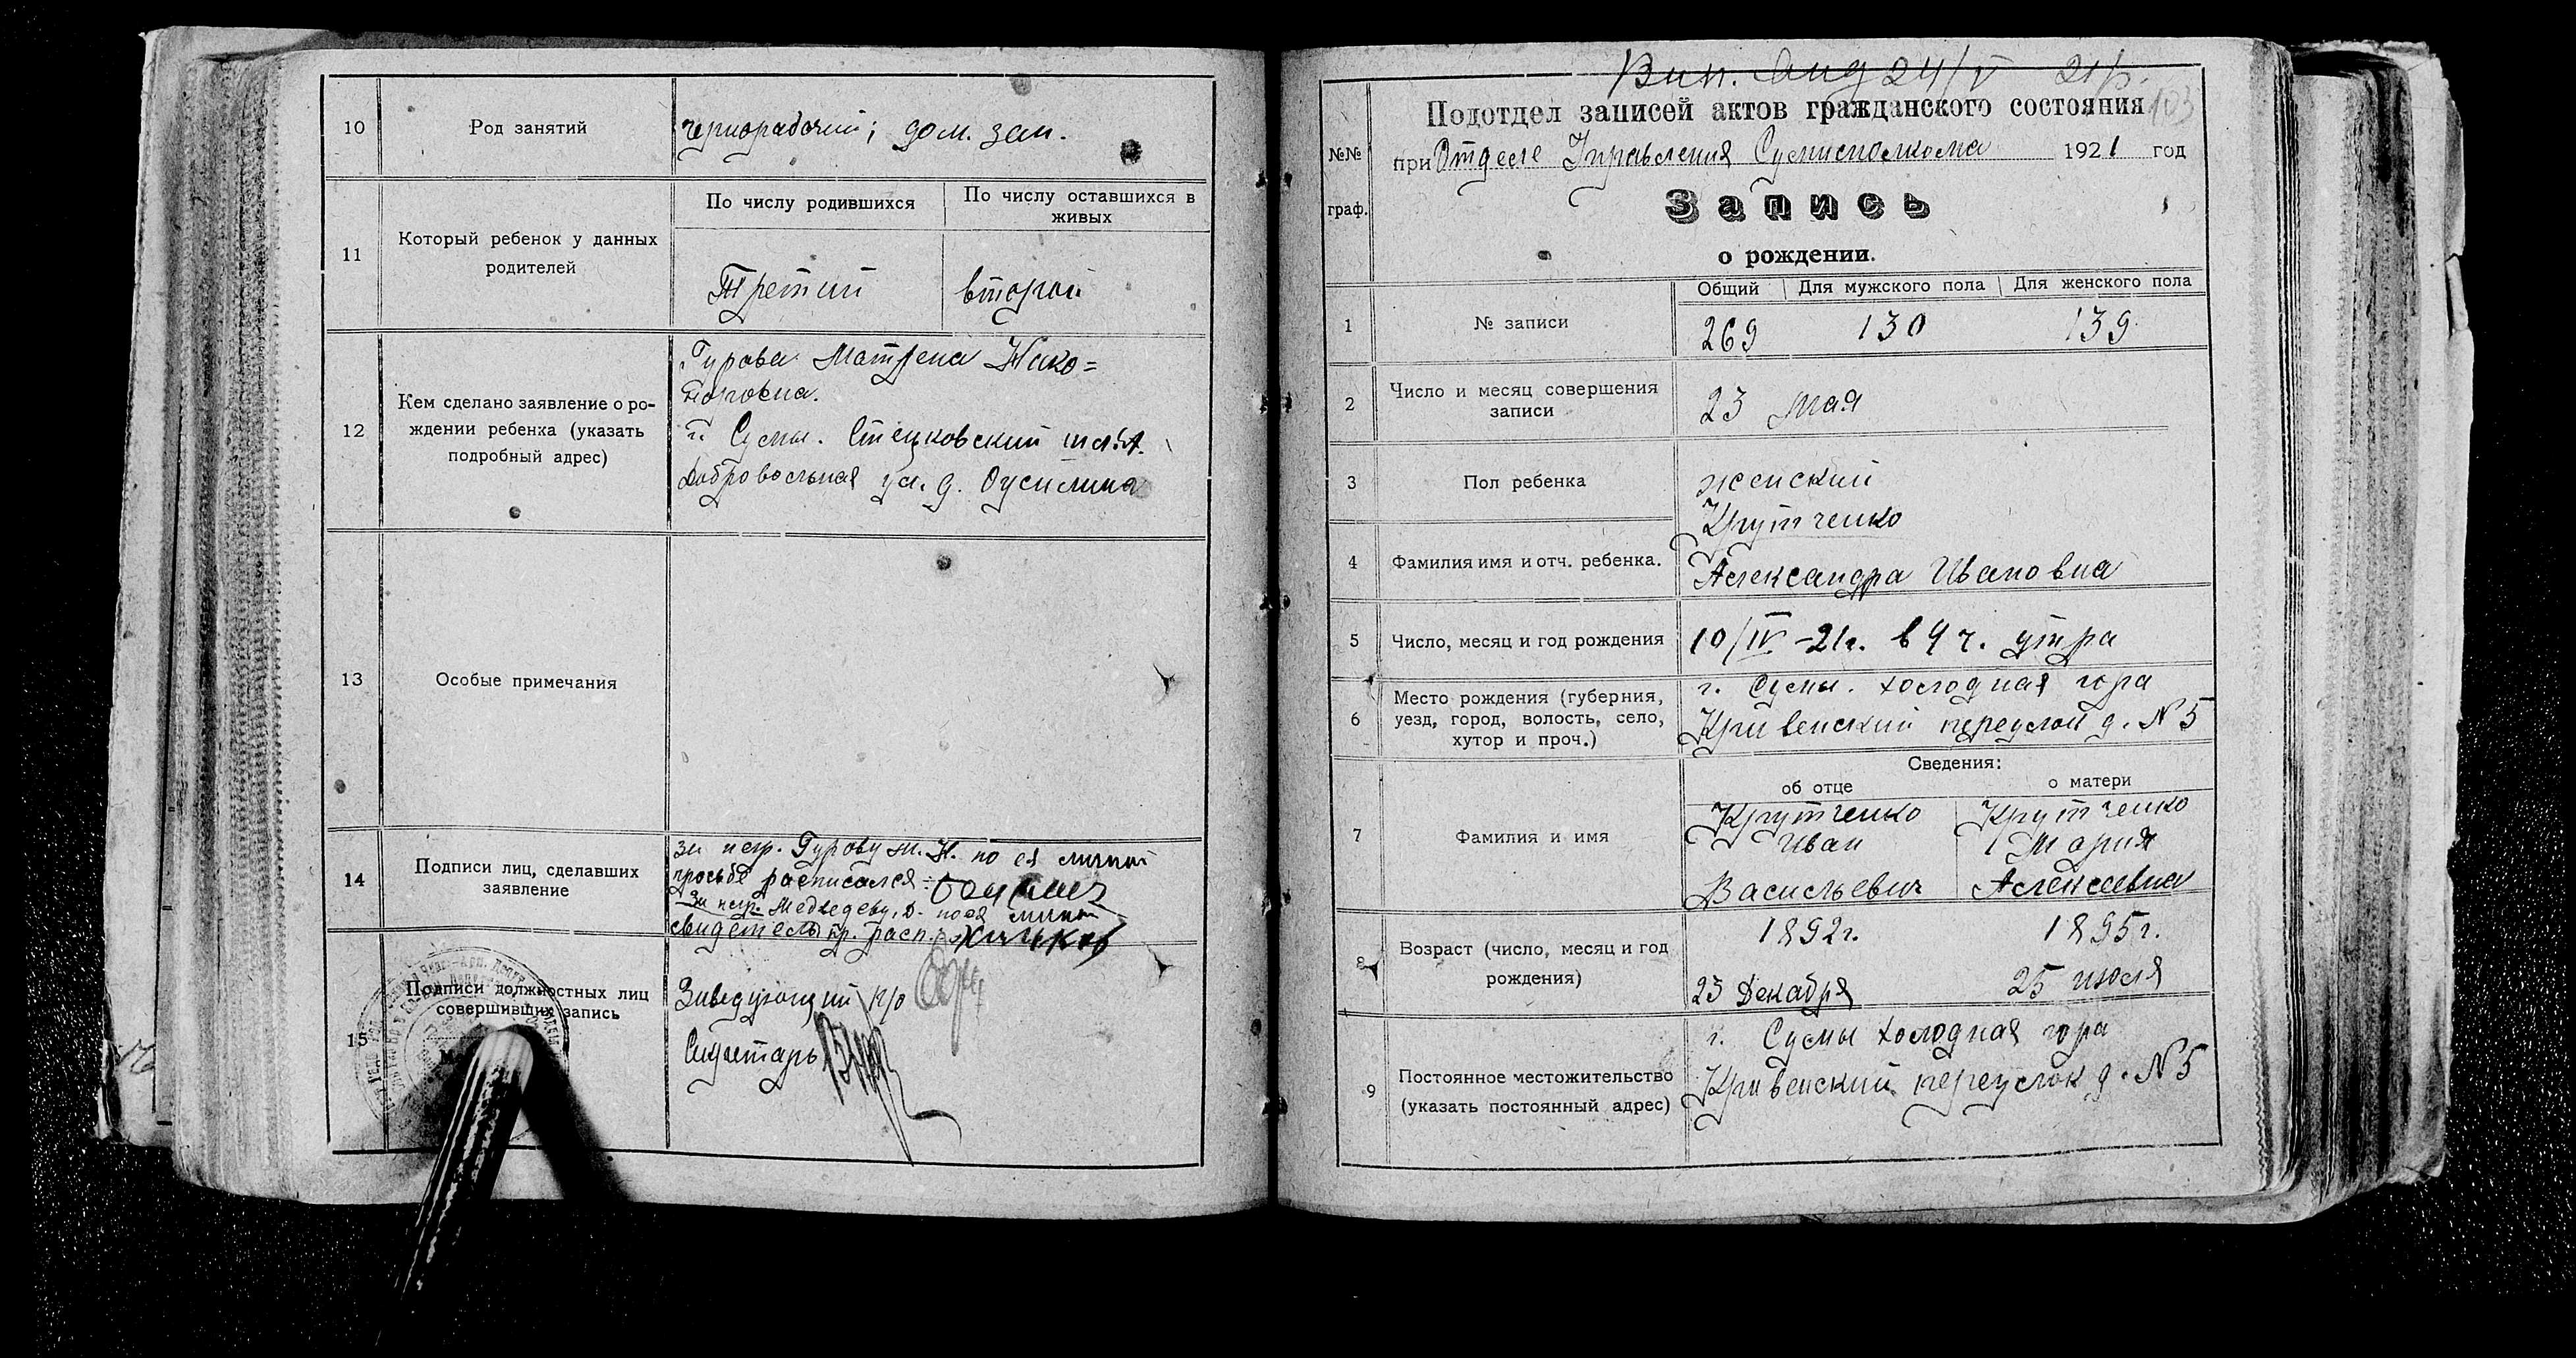 10
Род занятий
чернорабочий; дом. зан.
11
Который ребенок у данных
родителей
По числу родившихся
По числу оставшихся в
живых
Третий
второй
12
Кем сделано заявление о ро-
ждении ребенка (указать
подробный адрес)
Гурова Матрена Нико=
норовна.
г. Сумы. Стецковский шлях
Добровольная ул. д.
13
Особые примечания
14
Подписи лиц, сделавших
заявление
за негр. Гурову М. Н. по ея личной
просьбе расписался
За негр. Медведеву, Д. по ея личной
свидетель пр. расп.
15
Подписи должностных лиц
совершивших запись
Заведующий п/о
Секретарь
24/V 21 р.
103
№№
граф.
Подотдел записей актов гражданского состояния
при Отделе Управления Сумисполкома 1921 год
Запись
о рождении.
1
№ записи
Общий Для мужского пола Для женского пола
269 130 139
2
Число и месяц совершения
записи
23 мая
3
Пол ребенка
женский
4
Фамилия имя и отч. ребенка.
Крутченко
Александра Ивановна
5
Число, месяц и год рождения
10/IV -21г. в 4 ч. утра
6
Место рождения (губерния,
уезд, город, волость, село,
хутор и проч.)
г. Сумы. холодная гора
Кривенский переулок д. № 5
7
Фамилия и имя
Сведения:
об отце
о матери
Крутченко
Иван
Васильевич
Крутченко
Мария
Алексеевна
8
Возраст (число, месяц и год
рождения)
1892г.
23 Декабря
1895г.
25 июля
9
Постоянное местожительство
(указать постоянный адрес)
г. Сумы холодная гора
Кривенский переулок д. № 5